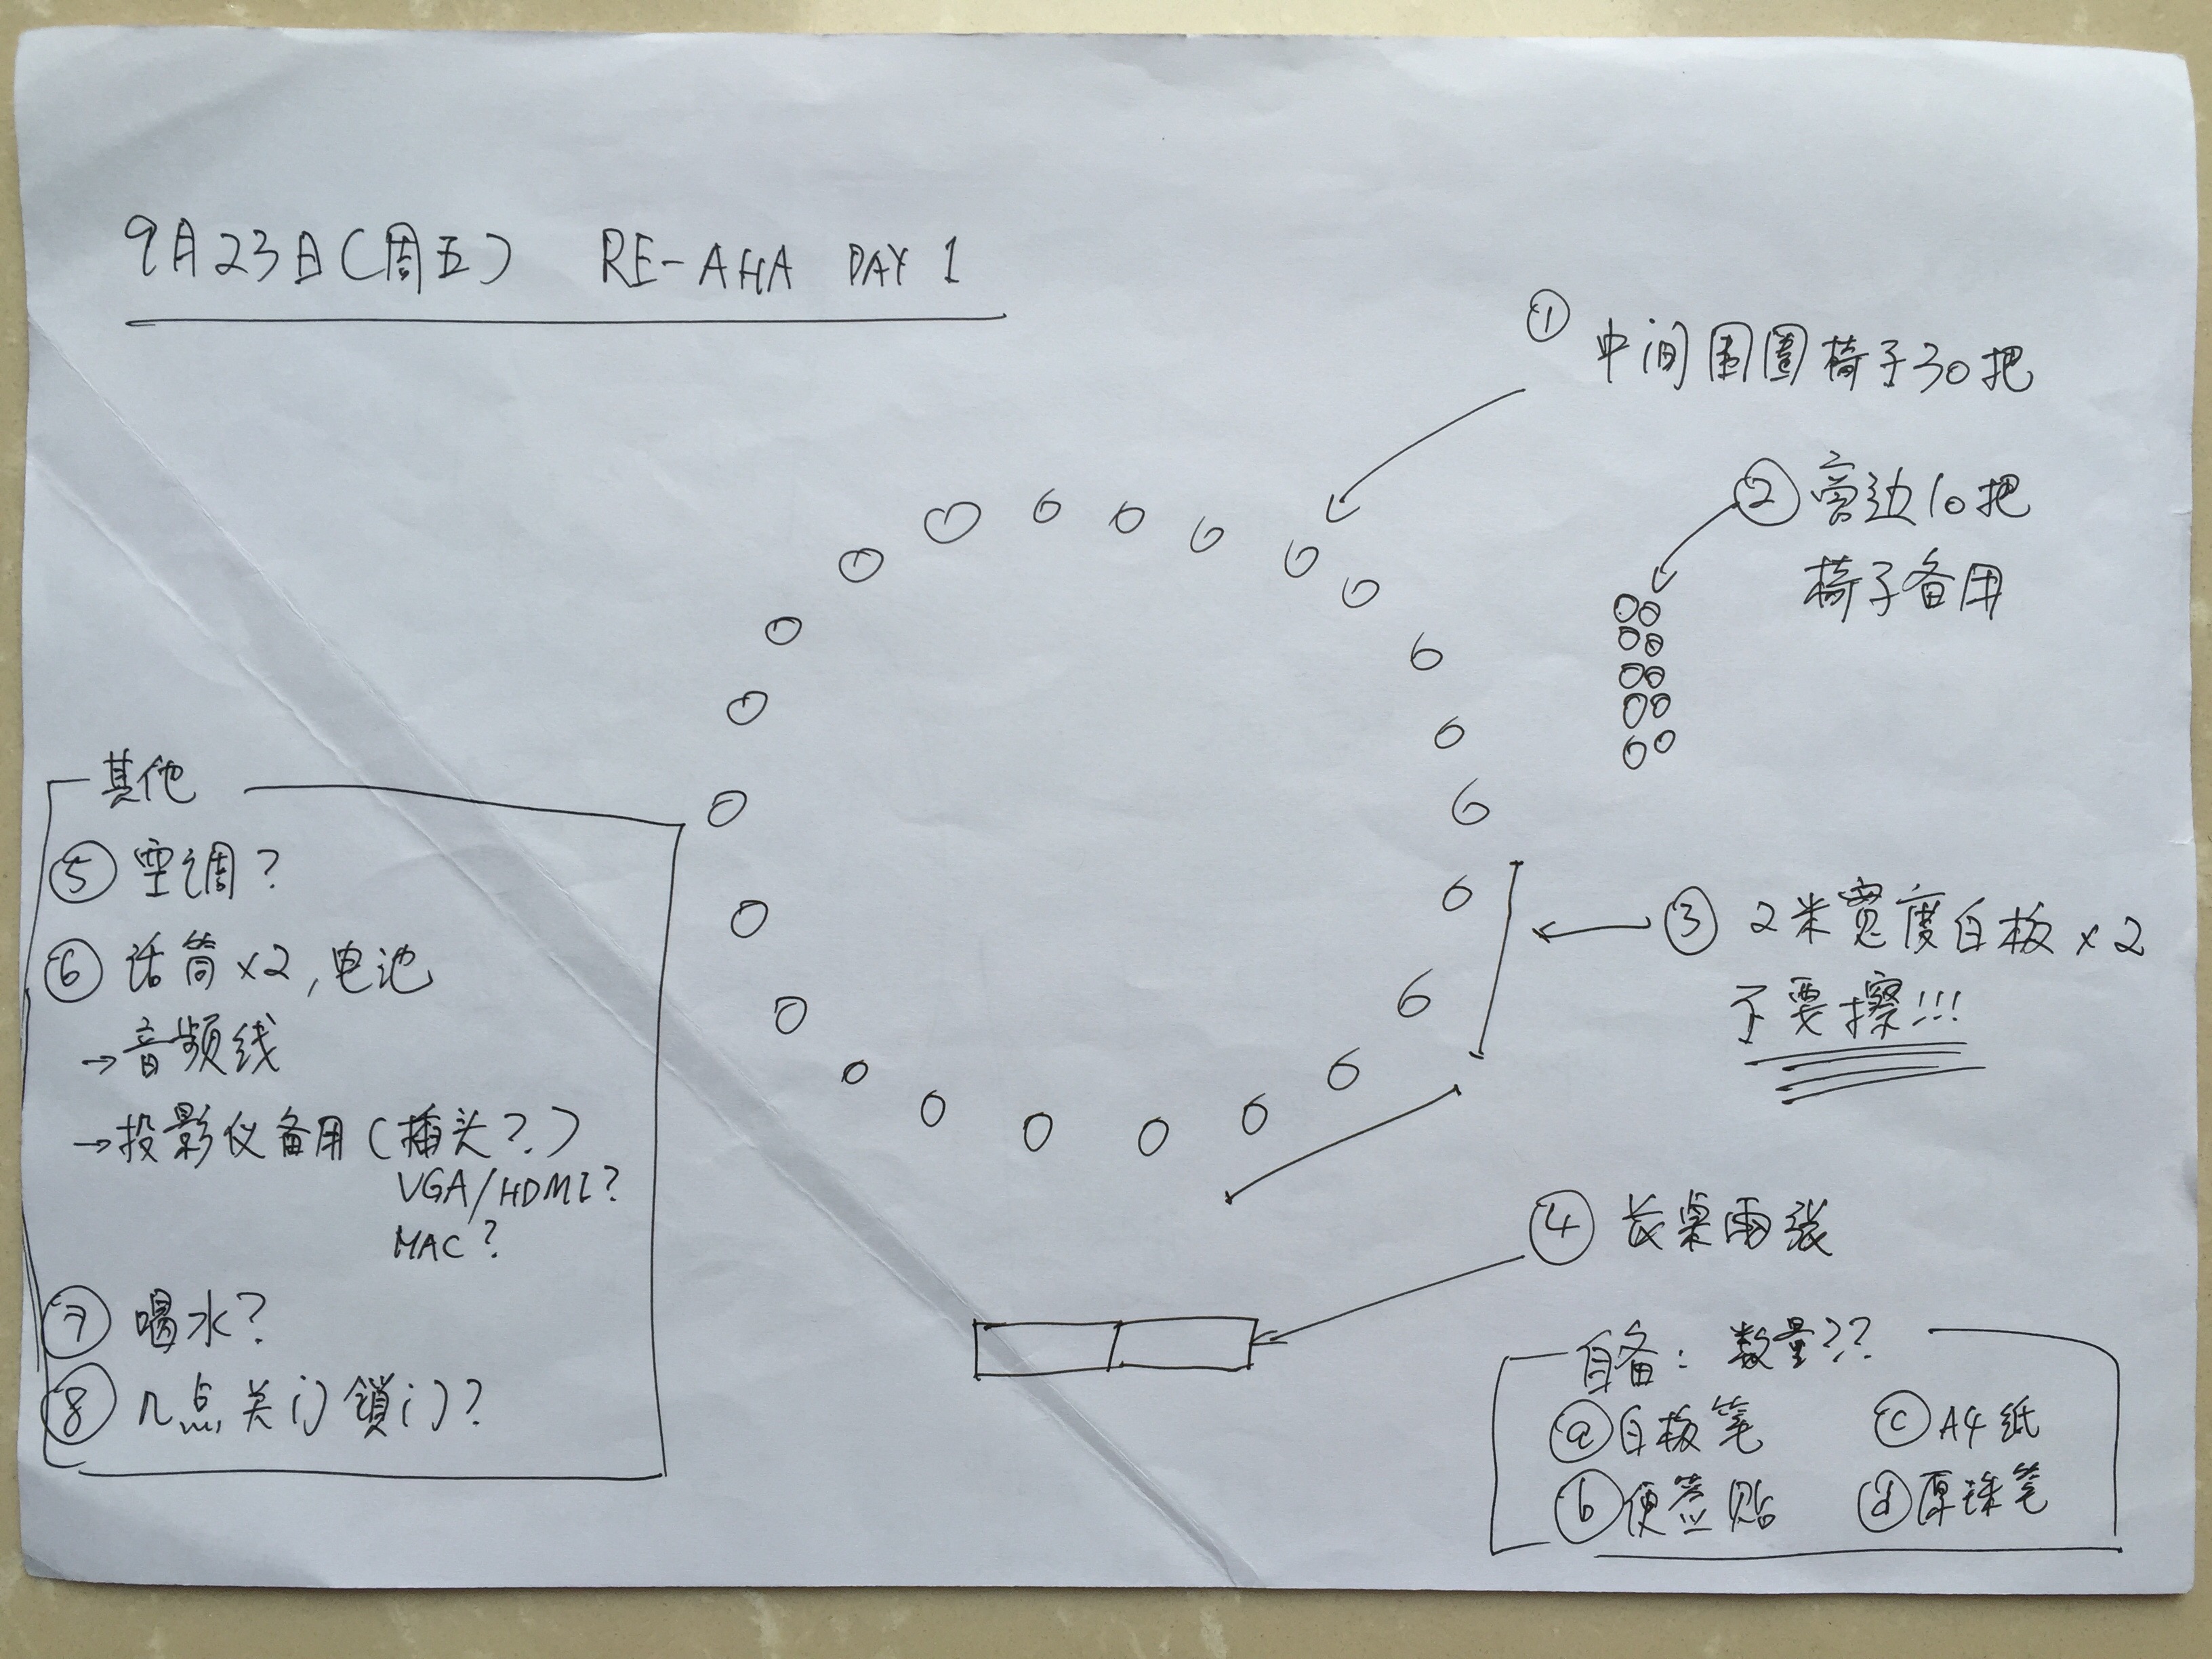 9月23日(周五) RE-AHA DAY 1
① 中间围圈椅子30把
② 旁边10把
椅子备用
③ 2米宽度白板×2
不要擦!!!
④ 长桌两张
其他
⑤ 空调?
⑥ 话筒×2,电池
→音频线
→投影仪备用(插头?)
VGA/HDMI?
MAC?
⑦ 喝水?
⑧ 几点关门锁门?
自备: 数量??
ⓐ白板笔 ⓒA4纸
ⓑ便签贴 ⓓ原珠笔